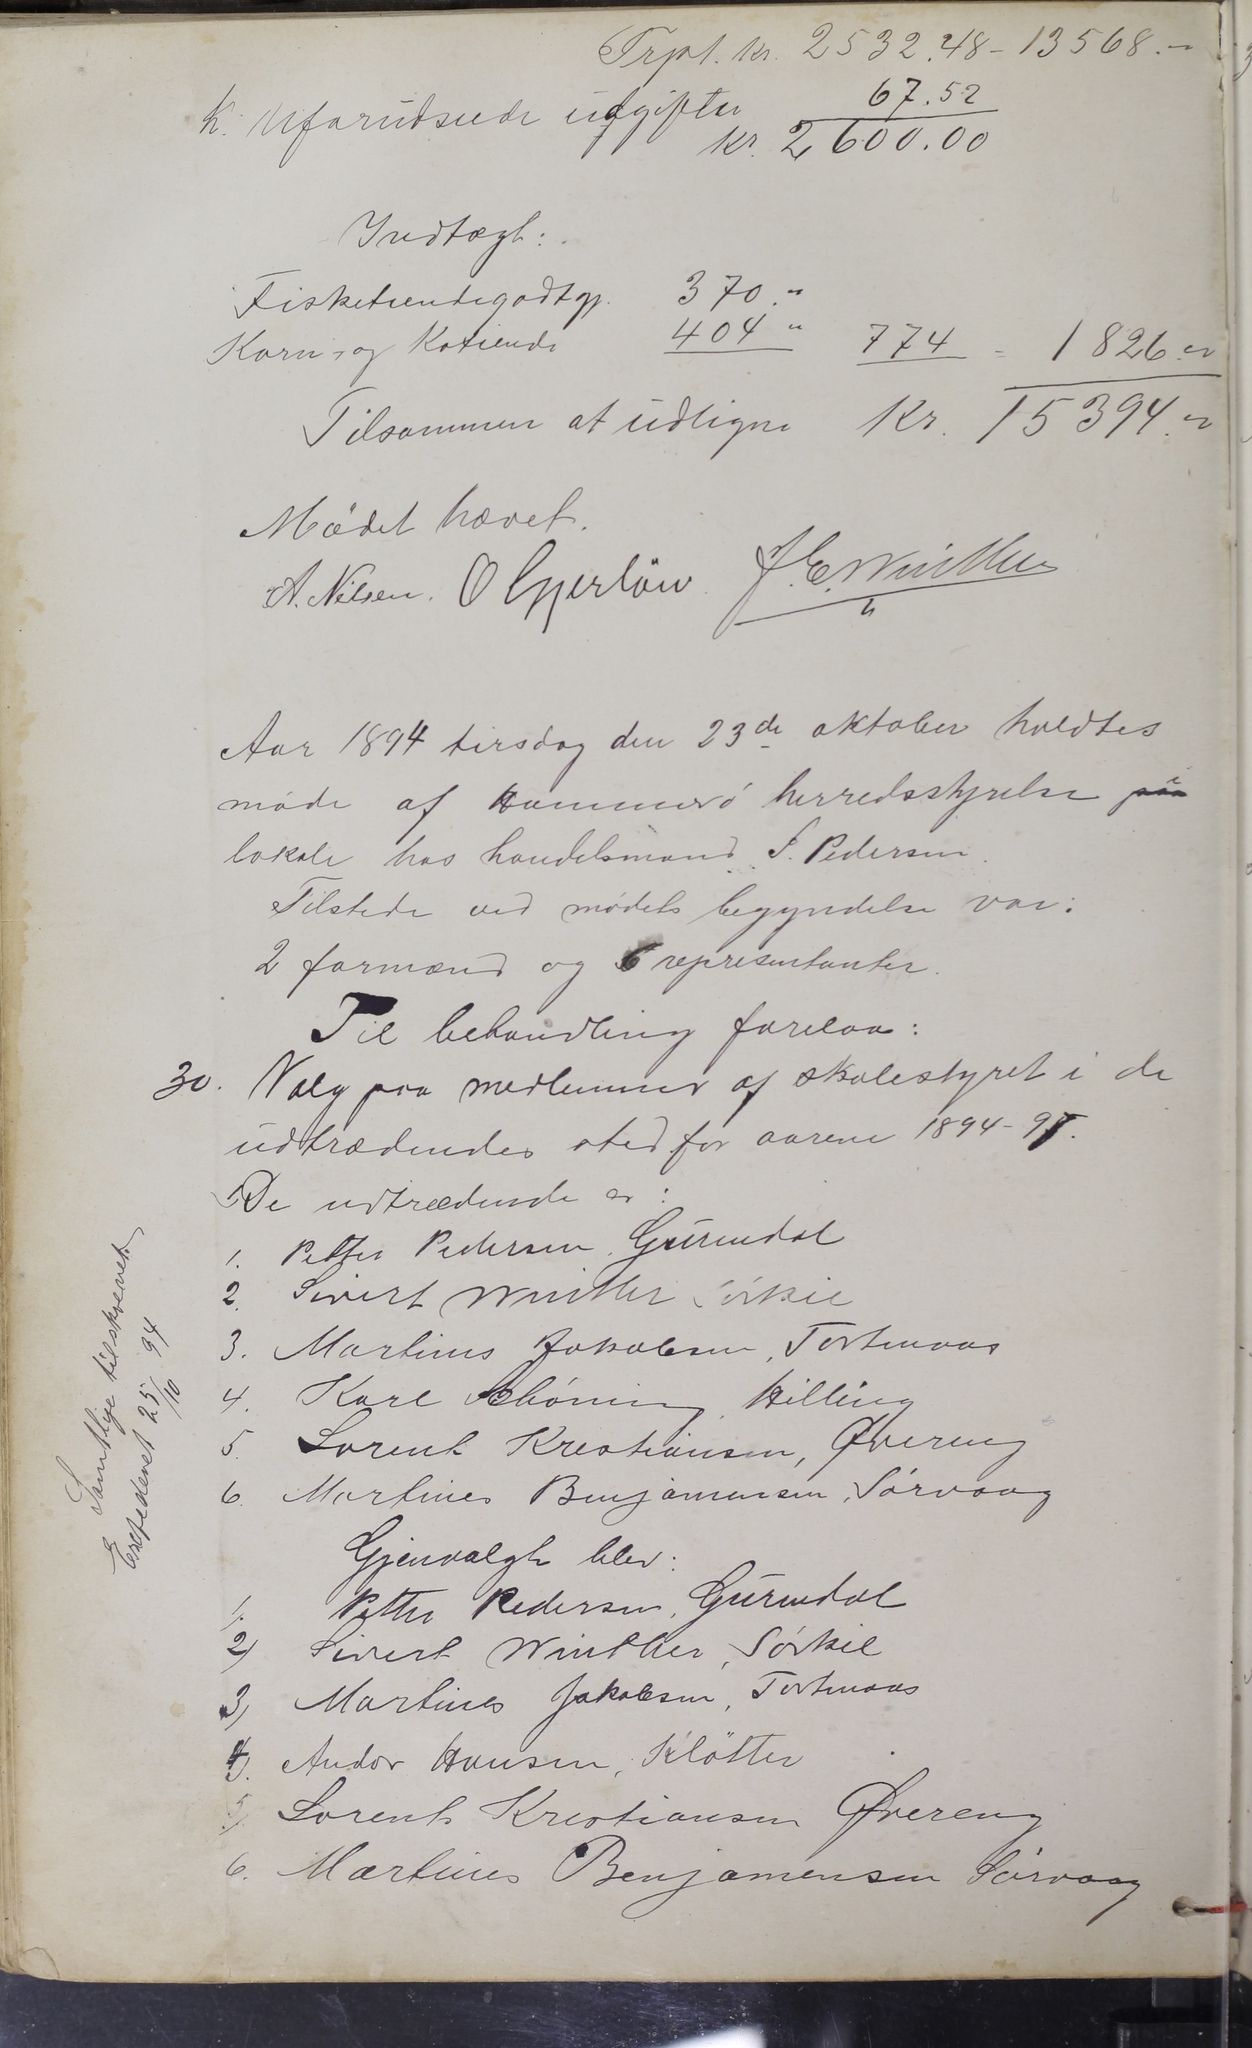 Trpt. kr. 2532.48 - 13568.-
k. Uforudseede udgifter 67.52
kr. 2600.00
Indtægt:
Fisketiendegodtgj. 370."
Korn- og Kotiende 404 " 774 = 1826."
Tilsammen at udligne Kr. 15394."
Mödet hævet.
A. Nilsen. O Gjerlöw J. C. Winther
Aar 1894 tirsdag den 23de oktober holdtes
møde af Hammerö herredsstyrelse paa i
lokale hos handelsmand S. Pedersen.
Tilstede ved mødets begyndelse var:
2 formænd og 6 representanter.
Til behandling forelaa:
30. Valg paa medlemmer af skolestyret i de
udtrædendes sted for aarene 1894-97.
De udtrædende er:
1. Petter Pedersen, Gurendal
2. Sivert Winther Sörkil
3. Martinus Jakobsen, Tortenaas
4. Karl Schöning, Hilling
5. Lorents Kristiansen, Øvereng
6. Martines Benjamensen, Sörvaag
Samtlige tilskrevet
Expederet 25/10 94
Gjenvalgt blev:
1. Petter Pedersen, Gurendal
2) Sivert Winther, Sörkil
3) Martines Jakobsen, Tortenaas
4). Andor Hansen, Kløtter
5) Lorents Kristiansen Øvereng
6. Martines Benjamensen Sörvaag